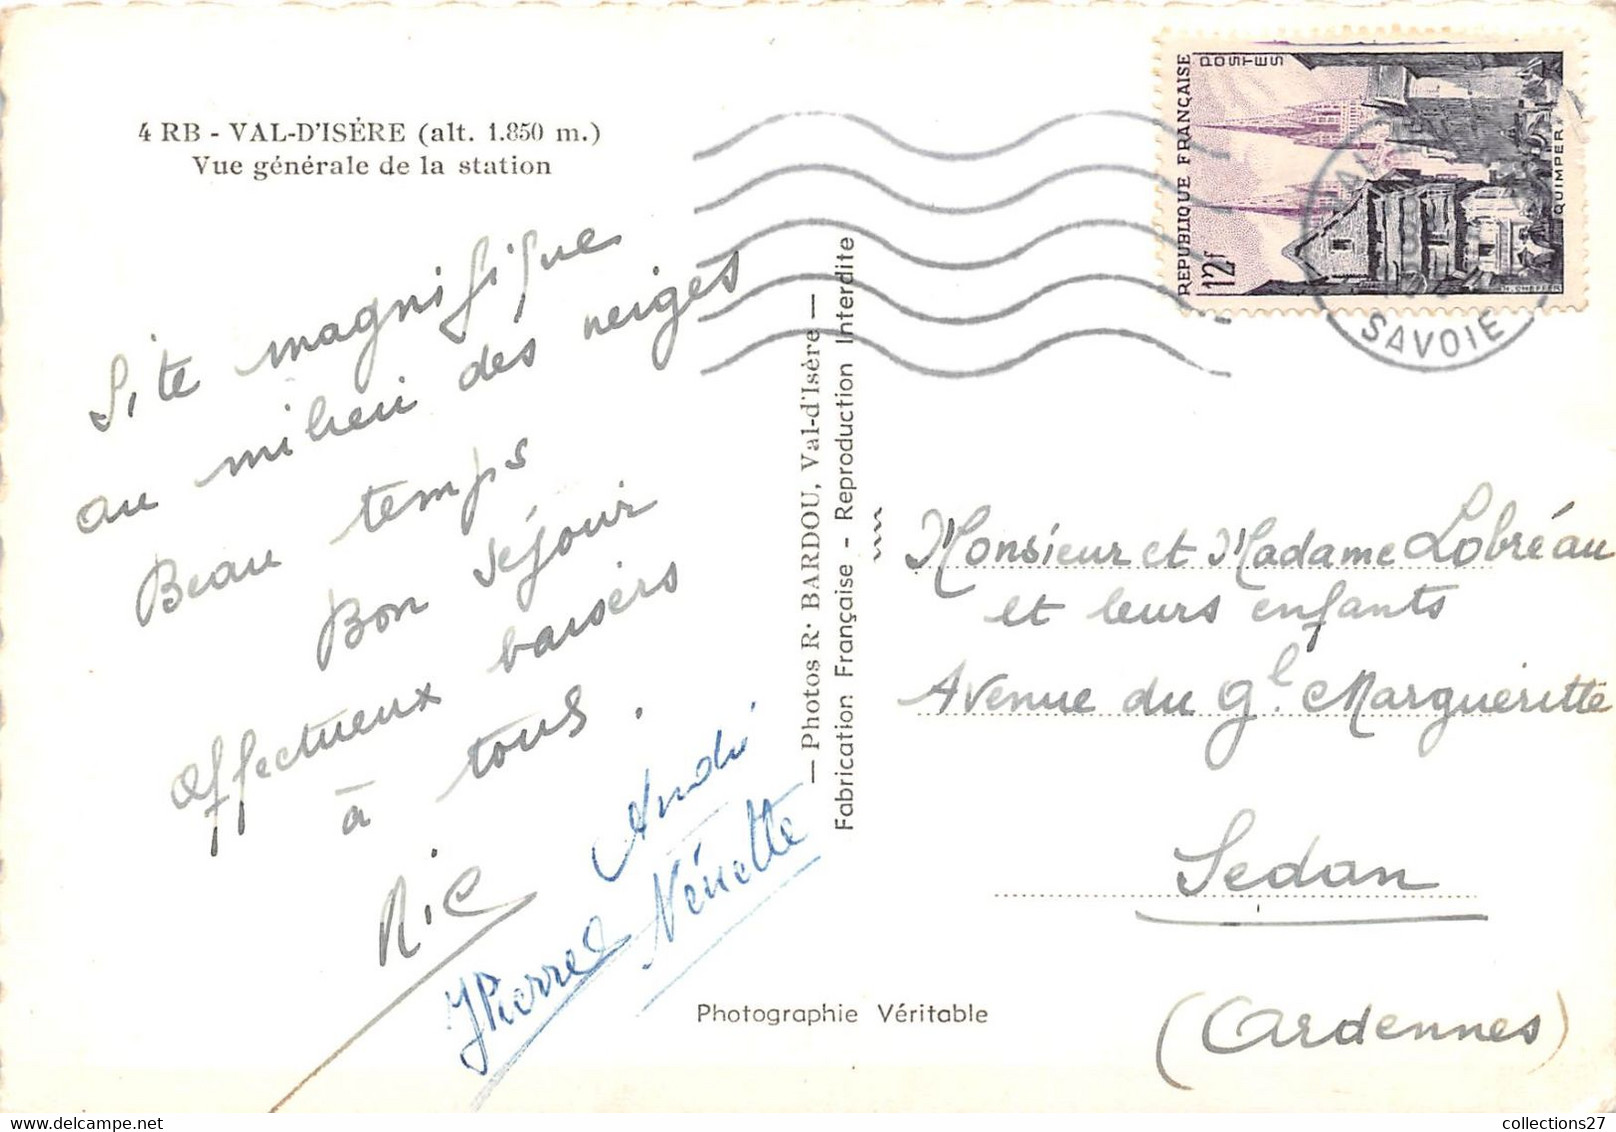 4 RB - VAL-D'ISÈRE (alt. 1.850 m.)
Vue générale de la station
Site magnifique
au milieu des neiges
Beau temps
Bon séjour
Affectueux baisers
à tous.
Ric
André
JPierre
Nénette
— Photos R. BARDOU, Val-d'Isère —
Fabrication Française - Reproduction Interdite
Photographie Véritable
RÉPUBLIQUE FRANÇAISE
POSTES
12f
QUIMPER
SAVOIE
Monsieur et Madame Lobréau
et leurs enfants
Avenue du Gl. Margueritte
Sedan
(Ardennes)
collections27